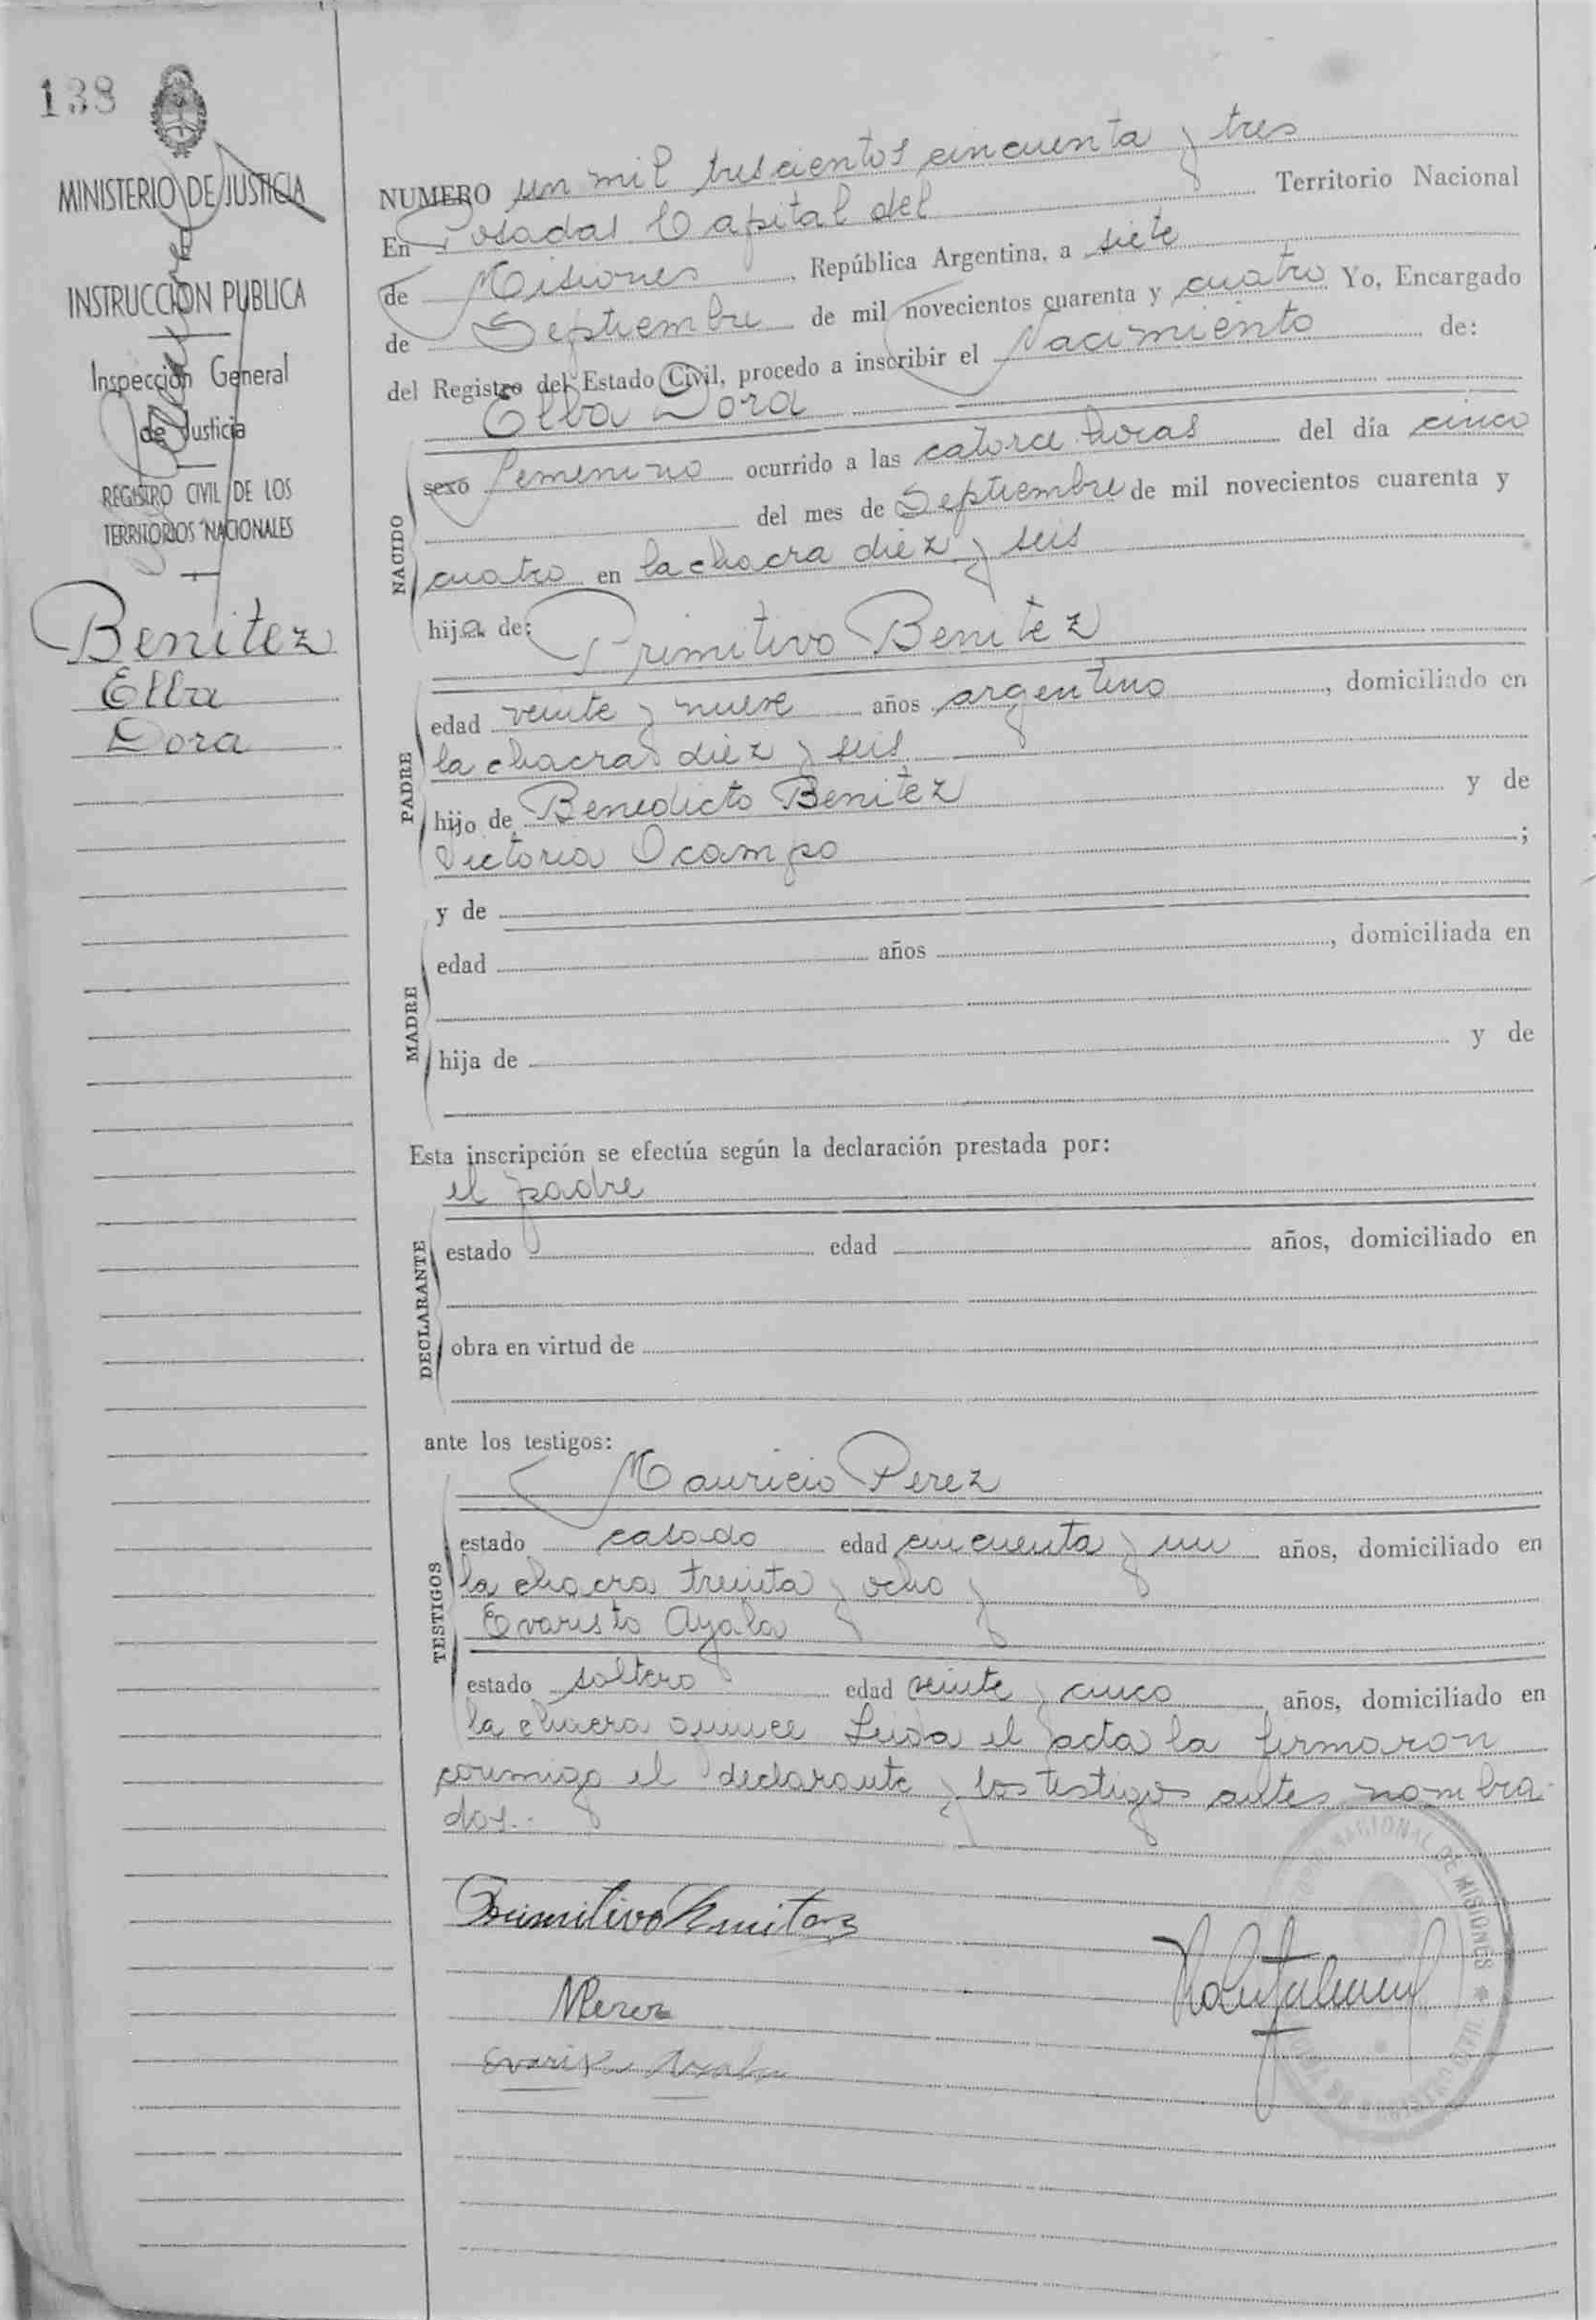 138
MINISTERIO DE JUSTICIA
E
INSTRUCCION PUBLICA
Inspección General
de Justicia
REGISTRO CIVIL DE LOS
TERRITORIOS NACIONALES
Benitez
Elba
Dora
NUMERO un mil trescientos cincuenta y tres
En Posadas Capital del Territorio Nacional
de Misiones, República Argentina, a siete
de Septiembre de mil novecientos cuarenta y cuatro Yo, Encargado
del Registro del Estado Civil, procedo a inscribir el Nacimiento de:
Elba Dora
NACIDO
sexo femenino ocurrido a las catorce horas del día cinco
del mes de Septiembre de mil novecientos cuarenta y
cuatro en la chacra diez y seis
hija de: Primitivo Benitez
PADRE
edad veinte y nueve años argentino, domiciliado en
la chacra diez y seis
hijo de Benedicto Benitez y de
Victoria Ocampo;
y de
MADRE
edad años, domiciliada en
hija de y de
Esta inscripción se efectúa según la declaración prestada por:
el padre
DECLARANTE
estado edad años, domiciliado en
obra en virtud de
ante los testigos:
Mauricio Perez
TESTIGOS
estado casado edad cincuenta y un años, domiciliado en
la chacra treinta y ocho y
Evaristo Ayala
estado soltero edad veinte y cinco años, domiciliado en
la chacra quince Leida el acta la firmaron
conmigo el declarante y los testigos antes nombra-
dos.-
Primitivo Benitez
MPerez
Evaristo Ayala
NACIONAL DE MISIONES